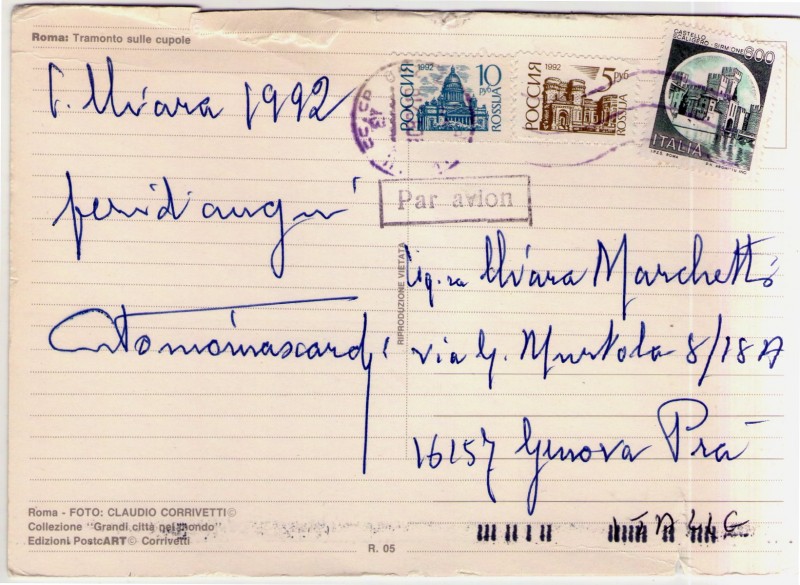 Roma: Tramonto sulle cupole
S. Chiara 1992
fervidi auguri
Sig.na Chiara Marchetti
via G. Murtola 8/18A
16157 Genova Prà
РОССИЯ
1992
10
руб
ROSSIJA
РОССИЯ
1992
5
руб
ROSSIJA
CASTELLO
SCALIGERO - SIRMIONE
600
ITALIA
Par avion
RIPRODUZIONE VIETATA
Roma - FOTO: CLAUDIO CORRIVETTI©
Collezione "Grandi città nel mondo"
Edizioni PostcART© Corrivetti
R. 05